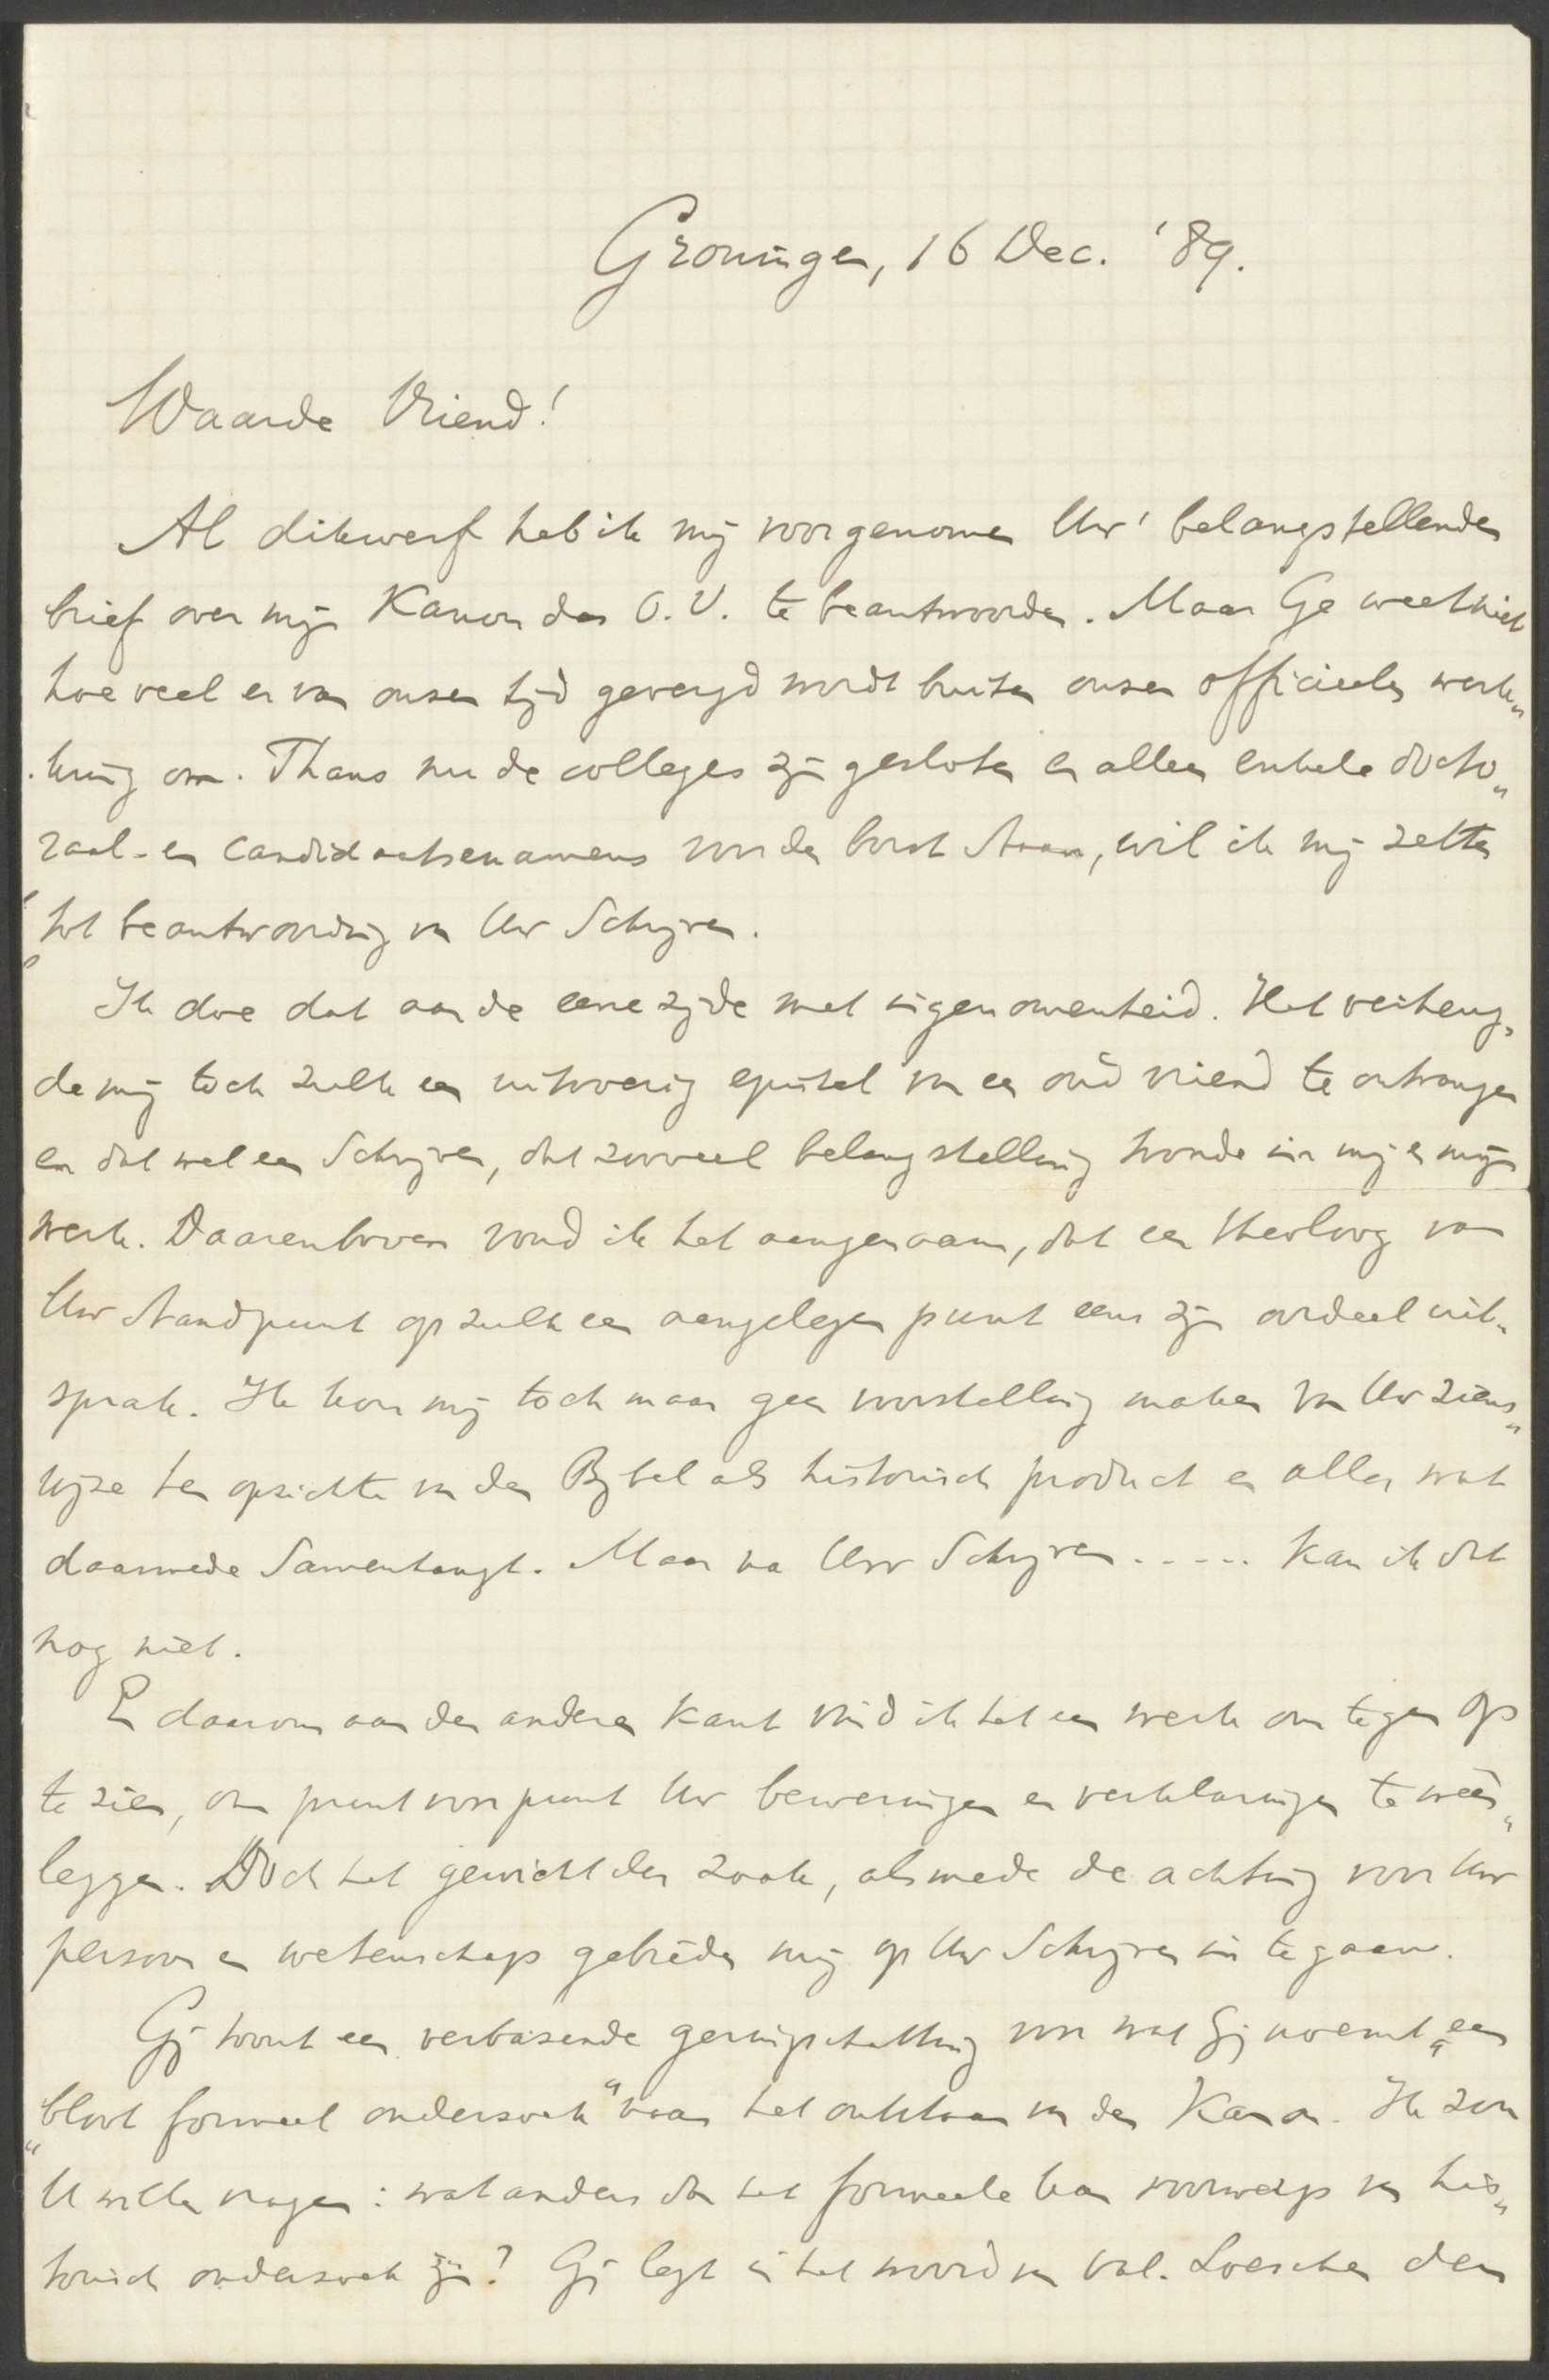 Groningen, 16 Dec. '89.
Waarde Vriend!
Al dikwerf heb ik mij voorgenomen Uw' belangstellenden
brief over mijn Kanon des O.V. te beantwoorden. Maar Ge weet niet
hoeveel er van onzen tijd gevergd wordt buiten onzen officieelen werk„
kring om. Thans nu de colleges zijn gesloten en alleen enkele docto„
raal- en candidaatsexamens voor de borst staan, wil ik mij zetten
tot beantwoording van Uw Schrijven.
Ik doe dat aan de eene zijde met ingenomenheid. Het verheug„
de mij toch zulk een uitvoerig epistel van een oud vriend te ontvangen
en dat wel een Schrijven, dat zooveel belangstelling toonde in mij en mijn
werk. Daarenboven vond ik het aangenaam, dat een theoloog van
Uw standpunt op zulk een aangelegen punt eens zijn oordeel uit„
sprak. Ik kon mij toch maar geen voorstelling maken van Uw ziens„
wijze ten opzichte van den Bijbel als historisch product en alles wat
daarmede Samenhangt. Maar na Uw Schrijven ..... kan ik dat
nog niet.
En daarom aan den anderen kant vind ik het een werk om tegen op
te zien, om punt voor punt Uw beweringen en verklaringen te weêr„
leggen. Doch het gewicht der zaak, alsmede de achting voor Uw
persoon en wetenschap gebieden mij op Uw Schrijven in te gaan.
Gij toont een verbazende geringschatting voor wat Gij noemt „een
„bloot formeel onderzoek" naar het ontstaan van den Kanon. Ik zou
U willen vragen: wat anders dan het formeele kan voorwerp van his„
torisch onderzoek zijn? Gij legt in het woord van Val. Loescher den